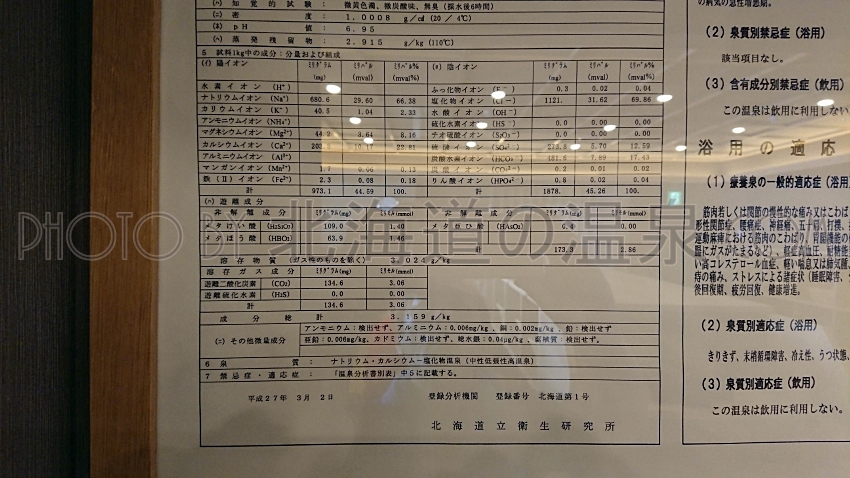 (ハ) 知覚的試験： 微黄色濁、微炭酸味、無臭 (採水後6時間)
(ニ) 密度： 1.0008 g/cm³ (20／4℃)
(ホ) pH値： 6.95
(ヘ) 蒸発残留物： 2.915 g/kg (110℃)
5 試料1kg中の成分：分量および組成
(イ) 陽イオン ミリグラム(mg) ミリバル(mval) ミリバル%(mval%) (ロ) 陰イオン ミリグラム(mg) ミリバル(mval) ミリバル%(mval%)
水素イオン (H⁺) ふっ化物イオン 0.3 0.02 0.04
ナトリウムイオン (Na⁺) 680.6 29.60 66.38 塩化物イオン 1121. 31.62 69.86
カリウムイオン (K⁺) 40.5 1.04 2.33 水酸イオン (OH⁻)
アンモニウムイオン (NH₄⁺) 硫化水素イオン (HS⁻) 0.0 0.00 0.00
マグネシウムイオン (Mg²⁺) 3.64 8.16 チオ硫酸イオン (S₂O₃²⁻) 0.0 0.00 0.00
カルシウムイオン (Ca²⁺) 10.17 22.81 硫酸イオン (SO₄²⁻) 5.70 12.59
アルミニウムイオン (Al³⁺) 炭酸水素イオン (HCO₃⁻) 481.6 7.89 17.43
マンガンイオン (Mn²⁺) 1.7 0.06 0.13 炭酸イオン (CO₃²⁻) 0.2 0.01 0.02
鉄(Ⅱ)イオン (Fe²⁺) 2.3 0.08 0.18 りん酸イオン (HPO₄²⁻) 0.02 0.04
計 973.1 44.59 100. 計 1878. 45.26 100.
(ハ) 遊離成分
非解離成分 ミリグラム(mg) ミリモル(mmol) 非解離成分 ミリグラム(mg) ミリモル(mmol)
メタけい酸 (H₂SiO₃) 109.0 1.40 メタ亜ひ酸 (HAsO₂) 0.00
メタほう酸 (HBO₂) 63.9 1.46 計 173.3 2.86
溶存物質 (ガス性のものを除く) 3.024 g/kg
溶存ガス成分 ミリグラム(mg) ミリモル(mmol)
遊離二酸化炭素 (CO₂) 134.6 3.06
遊離硫化水素 (H₂S) 0.0 0.00
計 134.6 3.06
成分総計 3.159 g/kg
(ニ) その他微量成分 アンモニウム：検出せず、アルミニウム：0.006mg/kg、銅：0.002mg/kg、鉛：検出せず
亜鉛：0.006mg/kg、カドミウム：検出せず、総水銀：0.04μg/kg、腐植質：検出せず。
6 泉質： ナトリウム・カルシウム－塩化物温泉 (中性低張性高温泉)
7 禁忌症・適応症： 「温泉分析書別表」中5に記載する。
平成27年 3月 2日 登録分析機関 登録番号 北海道第1号
北海道立衛生研究所
の病気の急性増悪期。
(2) 泉質別禁忌症 (浴用)
該当項目なし。
(3) 含有成分別禁忌症 (飲用)
この温泉は飲用に利用しない
浴用の適応
(1) 療養泉の一般的適応症 (浴用
筋肉若しくは関節の慢性的な痛み又はこわば
形性関節症、腰痛症、神経痛、五十肩、打撲、
運動麻痺における筋肉のこわばり、胃腸機能の
腸にガスがたまるなど)、軽症高血圧、耐糖能
い高コレステロール血症、軽い喘息又は肺気腫、
痔の痛み、ストレスによる諸症状 (睡眠障害、
後回復期、疲労回復、健康増進。
(2) 泉質別適応症 (浴用)
きりきず、末梢循環障害、冷え性、うつ状態、
(3) 泉質別適応症 (飲用)
この温泉は飲用に利用しない。
PHOTO BY 北海道の温泉